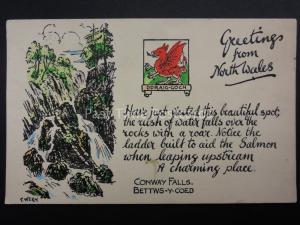 Greetings
from
North Wales
DDRAIG-GOCH
Have just visited this beautiful spot,
the rush of water falls over the
rocks with a roar. Notice the
ladder built to aid the Salmon
when leaping upstream
A charming place.
CONWAY FALLS,
BETTWS-Y-COED